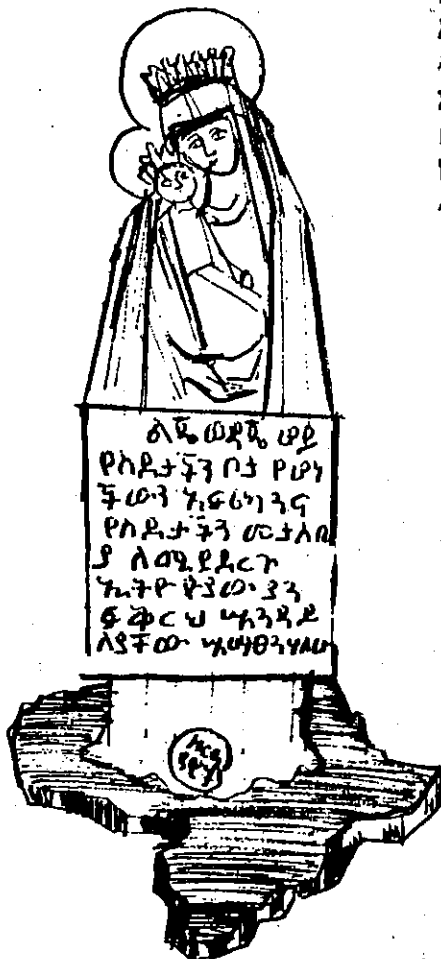 ልጄ ወዳጄ ሆይ
የስደታችን ቦታ የሆነ
ችውን አፍሪካንና
የስደታችን መታሰቢ
ያ ለሚያደርጉ
ኢትዮጵያውያን
ፍቅርህ እንዳይ
ለያቸው እማፀንሃለሁ